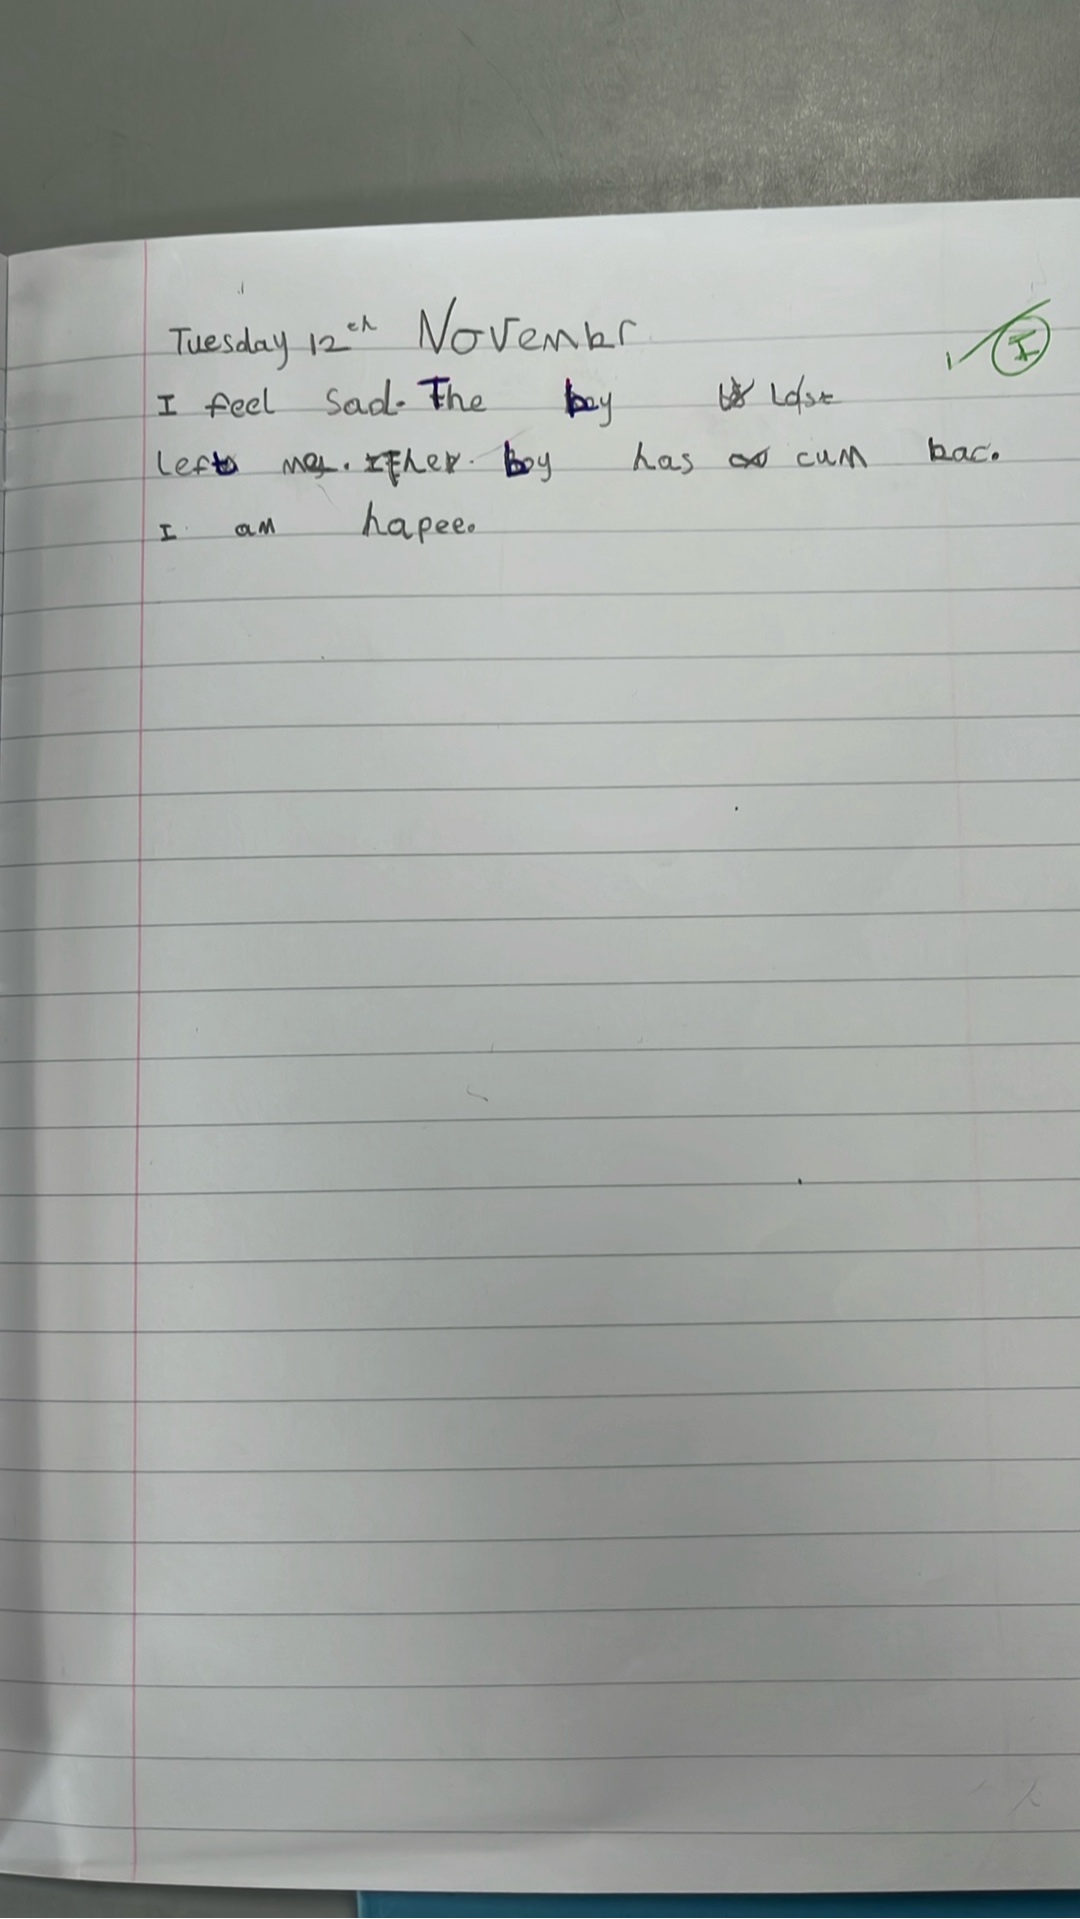 Tuesday 12th Novembr
I feel sad. The boy lost
left me. The boy has cum bac.
I am hapee.
I